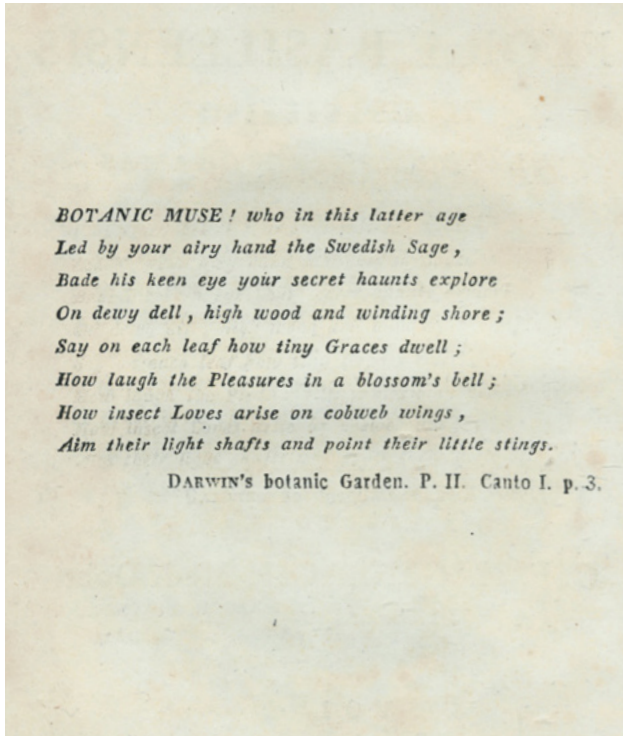 BOTANIC MUSE ! who in this latter age
Led by your airy hand the Swedish Sage ,
Bade his keen eye your secret haunts explore
On dewy dell , high wood and winding shore ;
Say on each leaf how tiny Graces dwell ;
How laugh the Pleasures in a blossom's bell ;
How insect Loves arise on cobweb wings ,
Aim their light shafts and point their little stings.
DARWIN's botanic Garden. P. II. Canto I. p. 3.